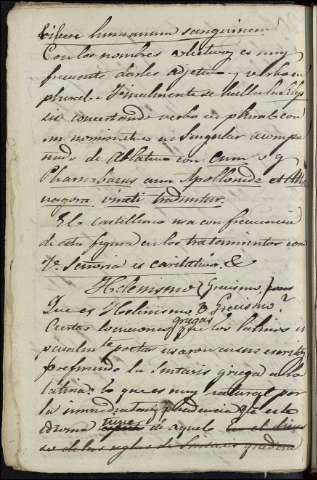 humanum sanguinem
Con los nombres colectivos es muy
frecuente darles adjetivo y verbo en
plural. Finalmente se halla la sylep
sis concertando verbo en plural con
un nominativo en singular acompa
ñado de ablativo con cum v. g.
Pharnabasus cum Apollonide et
nagora vincti traduntur.
El castellano usa con frecuencia
de esta figura en los tratamientos como
Va. Señoria es caritativo &
Helenismo (Grecismo)
Que es Helenismo ó Grecismo?
Ciertas locuciones griegas que los latinos es
pecialmte poetas usaron en sus escritos
prefiriendo la sintaxis griega a la
latina: lo que es muy natural por
la inmediata dependencia qe este
idioma tiene de aquel